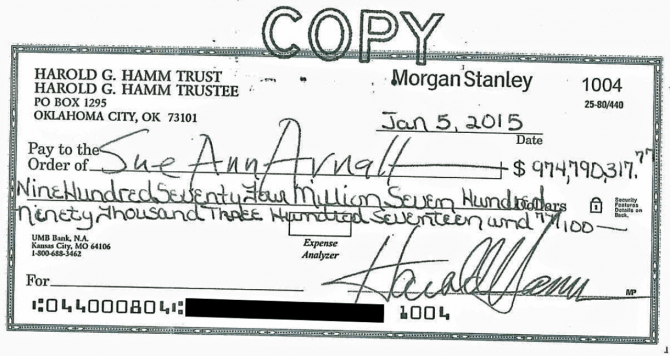 COPY
HAROLD G. HAMM TRUST
HAROLD G. HAMM TRUSTEE
PO BOX 1295
OKLAHOMA CITY, OK 73101
MorganStanley
1004
25-80/440
Jan 5, 2015
Date
Pay to the
Order of Sue Ann Arnall $ 974,790,317.77
Nine Hundred Seventy Four Million Seven Hundred Dollars
Ninety Thousand Three Hundred Seventeen and 77/100
Security
Features
Details on
Back.
UMB Bank, N.A.
Kansas City, MO 64106
1-800-688-3462
Expense
Analyzer
For
Harold Hamm
MP
⑆044000804⑆ 1004